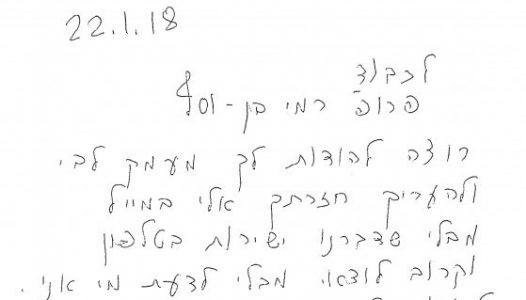 22.1.18
לכבוד
פרופ' רמי בן-יוסף
רוצה להודות לך מעמק לבי
ולהעריך חזרתך אלי במייל
מבלי שדברנו ישירות בטלפון
וקרוב לודאי מבלי לדעת מי אני.